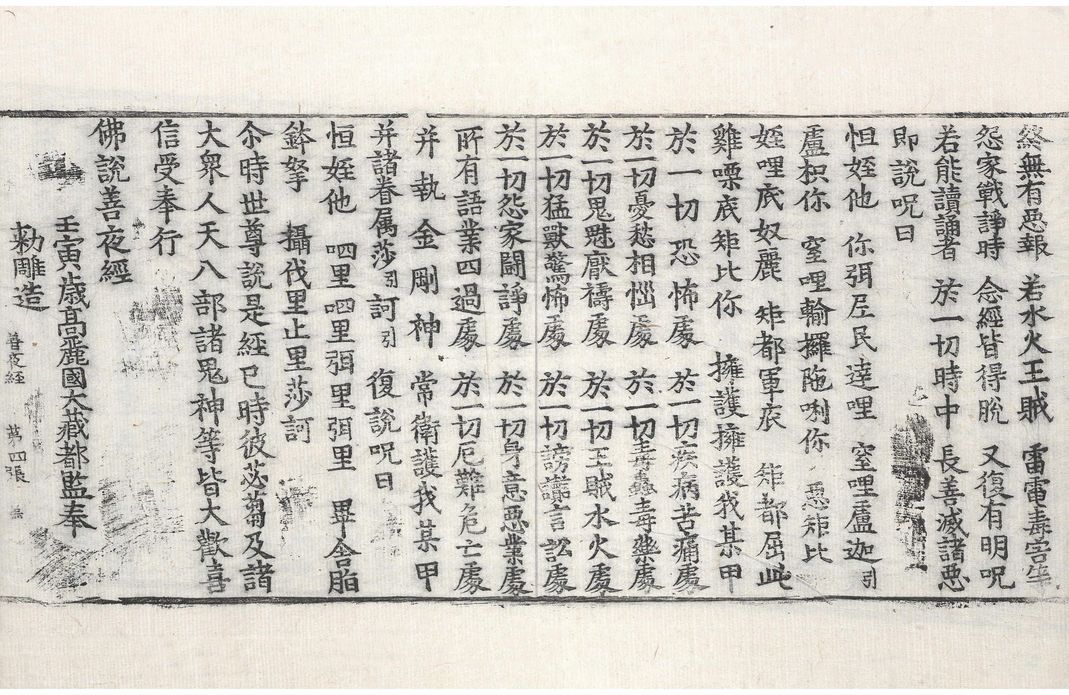 終無有惡報 若水火王賊 雷電毒害等
怨家戰諍時 念經皆得脫 又復有明呪
若能讀誦者 於一切時中 長善滅諸惡
即說呪曰
怛姪他 你弭𡱝民達哩 窒哩廬迦引
廬枳你 窒哩輸攞陁唎你 惡矩比
姪哩底奴麗 矩都軍底 矩都屈呲
雞㗚底矩比你 擁護擁護我某甲
於一切恐怖處 於一切疾病苦痛處
於一切憂愁相惱處 於一切毒蟲毒藥處
於一切鬼魅厭禱處 於一切王賊水火處
於一切猛獸驚怖處 於一切謗讟言訟處
於一切怨家鬪諍處 於一切身意惡業處
所有語業四過處 於一切厄難危亡處
幷執金剛神 常衛護我某甲
幷諸眷屬莎引訶引 復說呪曰
怛姪他 呬里呬里弭里弭里 畢舍脂
鉢拏 攝伐里止里莎訶
尒時世尊說是經已時彼苾蒭及諸
大衆人天八部諸鬼神等皆大歡喜
信受奉行
佛說善夜經
壬寅歲高麗國大藏都監奉
勑雕造
善夜經 第四張